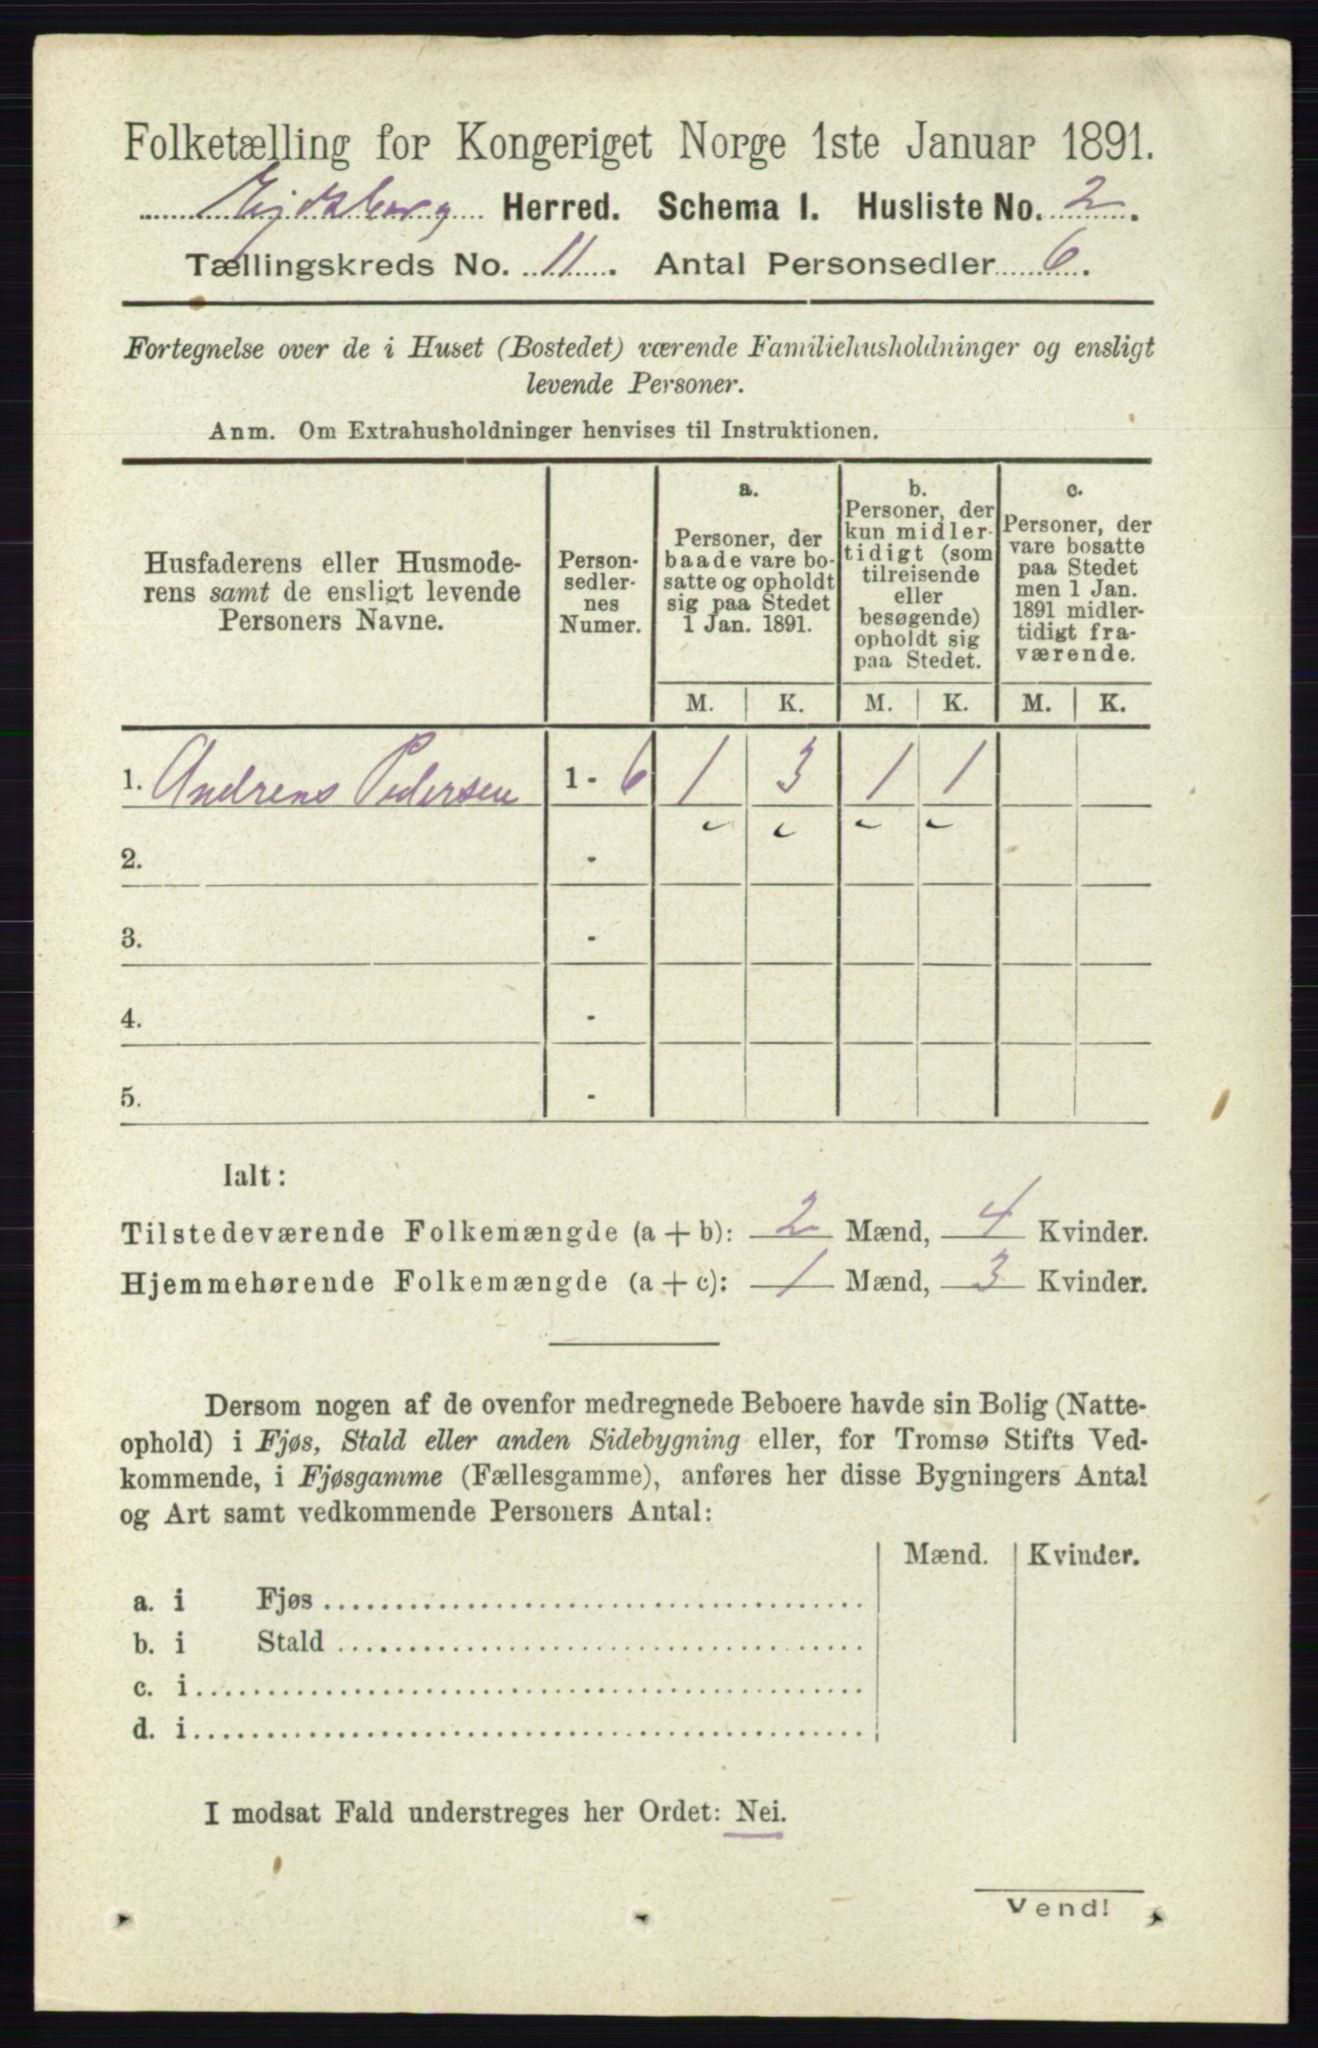 Folketælling for Kongeriget Norge 1ste Januar 1891.
Eidsberg Herred. Schema I. Husliste No. 2.
Tællingskreds No. 11. Antal Personsedler 6.
Fortegnelse over de i Huset (Bostedet) værende Familiehusholdninger og ensligt
levende Personer.
Anm. Om Extrahusholdninger henvises til Instruktionen.
Husfaderens eller Husmode-
rens samt de ensligt levende
Personers Navne.
Person-
sedler-
nes
Numer.
a.
Personer, der
baade vare bo-
satte og opholdt
sig paa Stedet
1 Jan. 1891.
b.
Personer, der
kun midler-
tidigt (som
tilreisende
eller
besøgende)
opholdt sig
paa Stedet.
c.
Personer, der
vare bosatte
paa Stedet
men 1 Jan.
1891 midler-
tidigt fra-
værende.
M. K. M. K. M. K.
1. Andreas Pedersen 1 - 6 1 3 1 1
2. -
3. -
4. -
5. -
Ialt:
Tilstedeværende Folkemængde (a + b): 2 Mænd, 4 Kvinder.
Hjemmehørende Folkemængde (a + c): 1 Mænd, 3 Kvinder.
Dersom nogen af de ovenfor medregnede Beboere havde sin Bolig (Natte-
ophold) i Fjøs, Stald eller anden Sidebygning eller, for Tromsø Stifts Ved-
kommende, i Fjøsgamme (Fællesgamme), anføres her disse Bygningers Antal
og Art samt vedkommende Personers Antal:
Mænd. Kvinder.
a. i Fjøs
b. i Stald
c. i
d. i
I modsat Fald understreges her Ordet: Nei.
Vend!